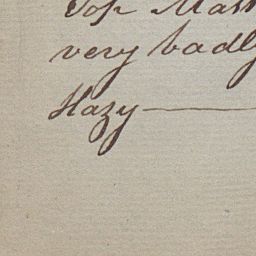 Top Mast
very badly
Hazy